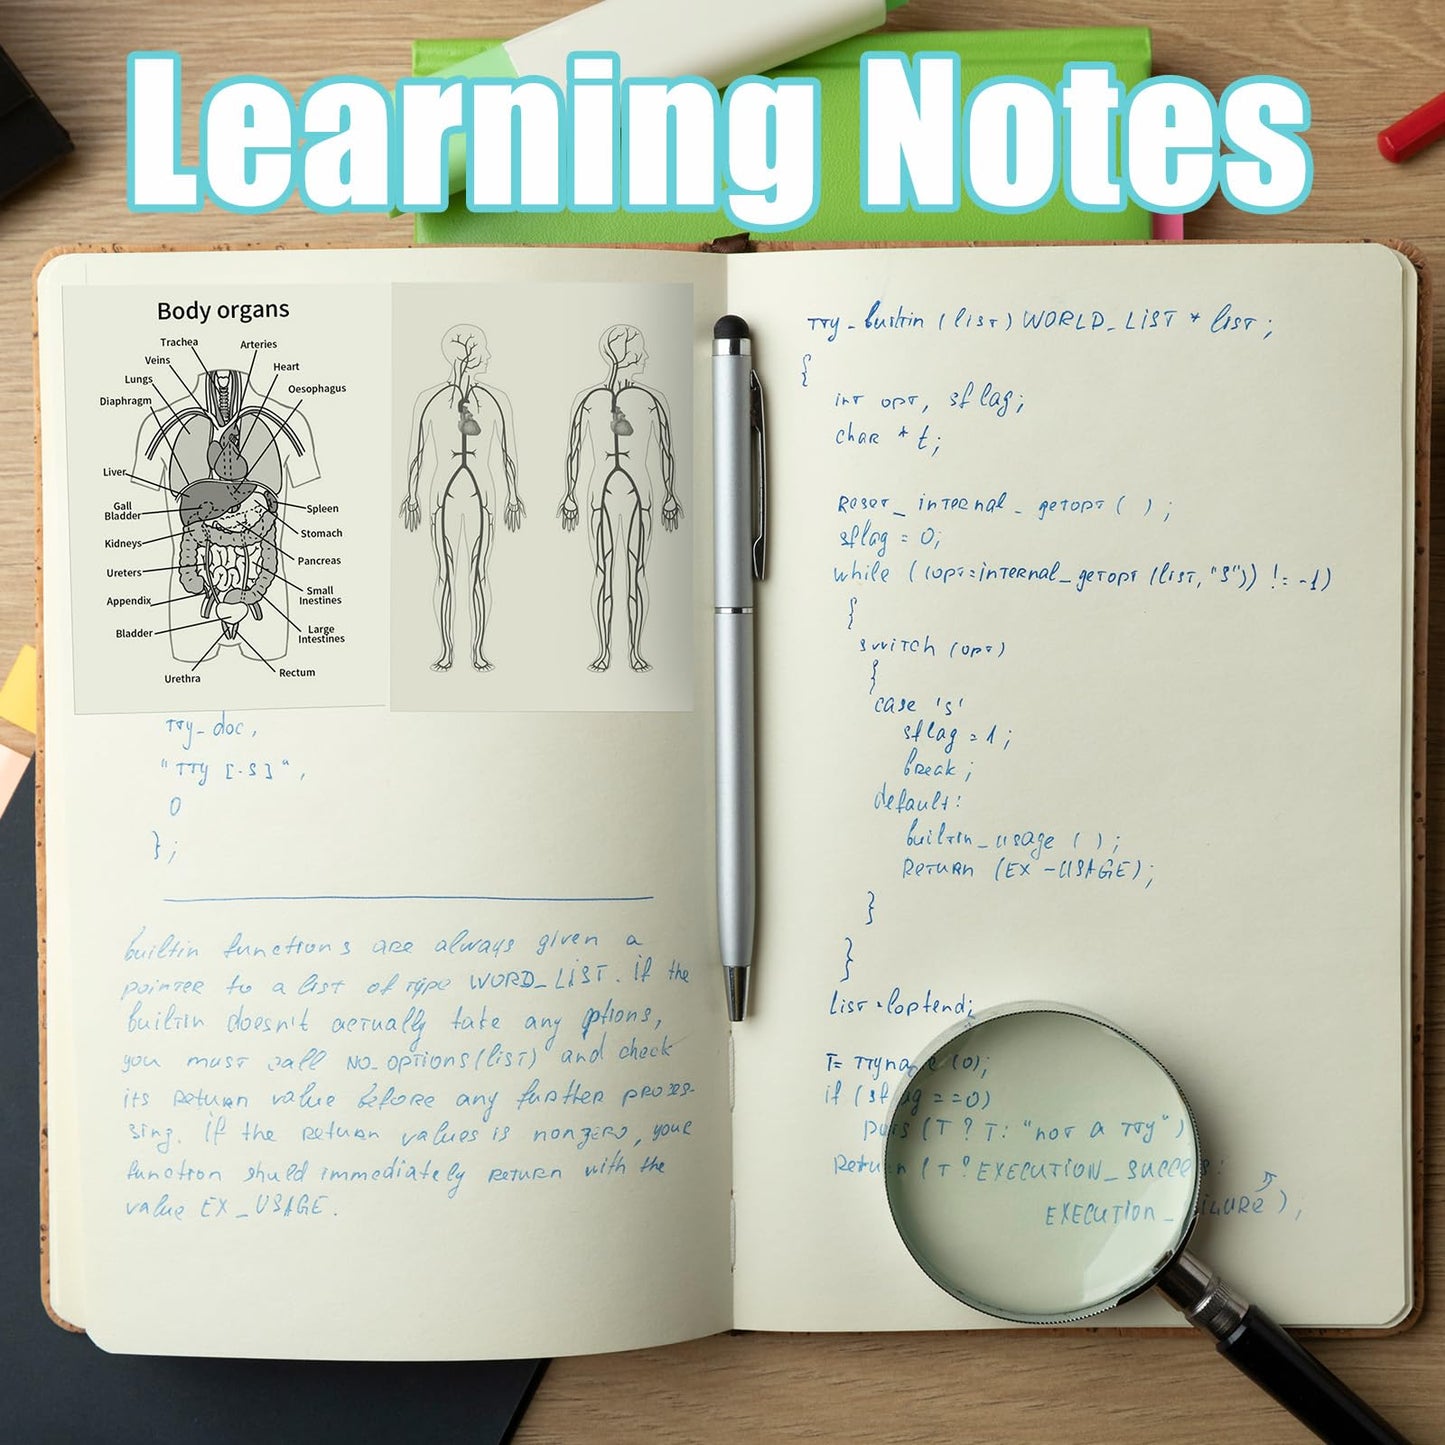 Learning Notes
Body organs
Trachea
Arteries
Veins
Heart
Lungs
Oesophagus
Diaphragm
Liver
Gall
Bladder
Spleen
Stomach
Kidneys
Pancreas
Ureters
Small
Inestines
Appendix
Large
Intestines
Bladder
Rectum
Urethra
tty_doc,
"tty [-s]",
0
};
builtin functions are always given a
pointer to a list of type WORD_LIST. if the
builtin doesn't actually take any ptions,
you must call no_options(list) and check
its return value before any further proces-
sing. if the return values is nonzero, your
function should immediately return with the
value EX_USAGE.
tty_builtin (list) WORLD_LIST * list;
{
int opt, sflag;
char * t;
Reset_internal_getopt ( );
sflag = 0;
while ((opt=internal_getopt (list,"s")) != -1)
{
switch (opt)
{
case 's'
sflag = 1;
break;
default:
builtin_usage ( );
Return (EX-USAGE);
}
}
list = loptend;
T= ttyname (0);
if (sflag ==0)
puts (T ? T: "not a tty")
Return (T ? EXECUTION_SUCCESS:
EXECUTION_FAILURE);